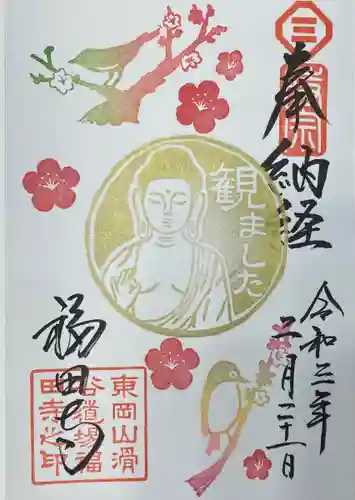 三
奉納経
観しました
令和三年
二月二十一日
福田寺
東岡山滑
谷道場福
田寺之印